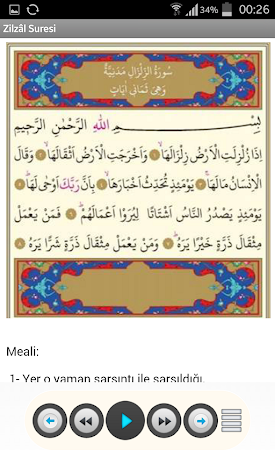 34% 00:26
Zilzâl Suresi
سُورَةُ الزِّلْزَالِ مَدَنِيَّةٌ
وَهِيَ ثَمَانِي آيَاتٍ
بِسْمِ اللّٰهِ الرَّحْمٰنِ الرَّحِيمِ
اِذَا زُلْزِلَتِ الْاَرْضُ زِلْزَالَهَاۙ ﴿١﴾ وَاَخْرَجَتِ الْاَرْضُ اَثْقَالَهَاۙ ﴿٢﴾ وَقَالَ
الْاِنْسَانُ مَالَهَاۚ ﴿٣﴾ يَوْمَئِذٍ تُحَدِّثُ اَخْبَارَهَاۙ ﴿٤﴾ بِاَنَّ رَبَّكَ اَوْحٰى لَهَاۜ ﴿٥﴾
يَوْمَئِذٍ يَصْدُرُ النَّاسُ اَشْتَاتًا لِيُرَوْا اَعْمَالَهُمْۜ ﴿٦﴾ فَمَنْ يَعْمَلْ
مِثْقَالَ ذَرَّةٍ خَيْرًا يَرَهُۜ ﴿٧﴾ وَمَنْ يَعْمَلْ مِثْقَالَ ذَرَّةٍ شَرًّا يَرَهُ ﴿٨﴾
Meali:
1- Yer o yaman sarsıntı ile sarsıldığı,